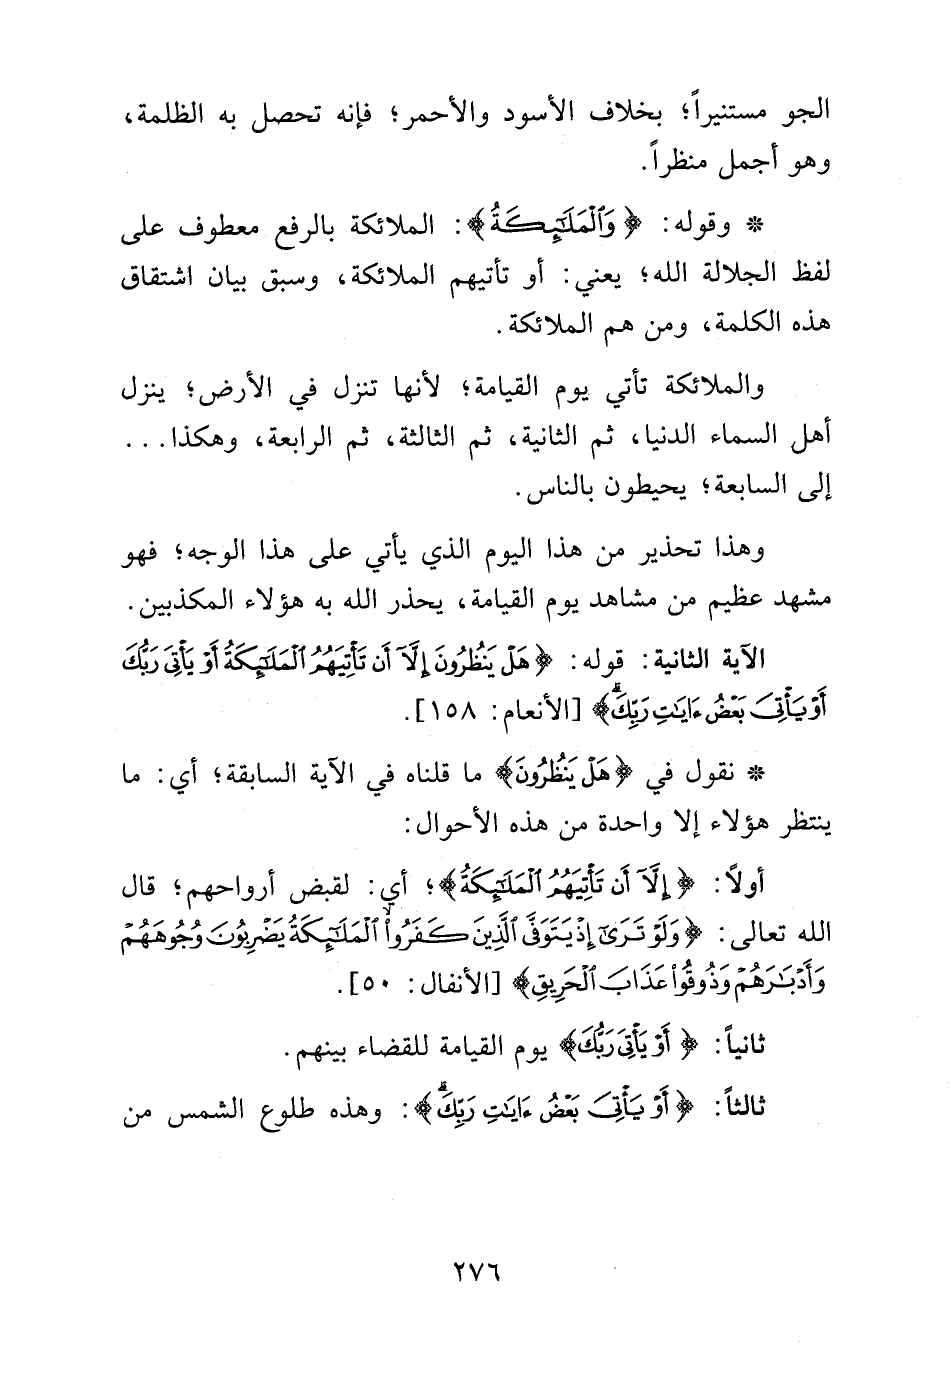 الجو مستنيراً؛ بخلاف الأسود والأحمر؛ فإنه تحصل به الظلمة،
وهو أجمل منظراً.
* وقوله: ﴿وَٱلْمَلَـٰٓئِكَةُ﴾: الملائكة بالرفع معطوف على
لفظ الجلالة الله؛ يعني: أو تأتيهم الملائكة، وسبق بيان اشتقاق
هذه الكلمة، ومن هم الملائكة.
والملائكة تأتي يوم القيامة؛ لأنها تنزل في الأرض؛ ينزل
أهل السماء الدنيا، ثم الثانية، ثم الثالثة، ثم الرابعة، وهكذا...
إلى السابعة؛ يحيطون بالناس.
وهذا تحذير من هذا اليوم الذي يأتي على هذا الوجه؛ فهو
مشهد عظيم من مشاهد يوم القيامة، يحذر الله به هؤلاء المكذبين.
الآية الثانية: قوله: ﴿هَلْ يَنظُرُونَ إِلَّآ أَن تَأْتِيَهُمُ ٱلْمَلَـٰٓئِكَةُ أَوْ يَأْتِىَ رَبُّكَ
أَوْ يَأْتِىَ بَعْضُ ءَايَـٰتِ رَبِّكَۗ﴾ [الأنعام: ١٥٨].
* نقول في ﴿هَلْ يَنظُرُونَ﴾ ما قلناه في الآية السابقة؛ أي: ما
ينتظر هؤلاء إلا واحدة من هذه الأحوال:
أولاً: ﴿إِلَّآ أَن تَأْتِيَهُمُ ٱلْمَلَـٰٓئِكَةُ﴾؛ أي: لقبض أرواحهم؛ قال
الله تعالى: ﴿وَلَوْ تَرَىٰٓ إِذْ يَتَوَفَّى ٱلَّذِينَ كَفَرُوا۟ ۙ ٱلْمَلَـٰٓئِكَةُ يَضْرِبُونَ وُجُوهَهُمْ
وَأَدْبَـٰرَهُمْ وَذُوقُوا۟ عَذَابَ ٱلْحَرِيقِ﴾ [الأنفال: ٥٠].
ثانياً: ﴿أَوْ يَأْتِىَ رَبُّكَ﴾ يوم القيامة للقضاء بينهم.
ثالثاً: ﴿أَوْ يَأْتِىَ بَعْضُ ءَايَـٰتِ رَبِّكَۗ﴾: وهذه طلوع الشمس من
٢٧٦